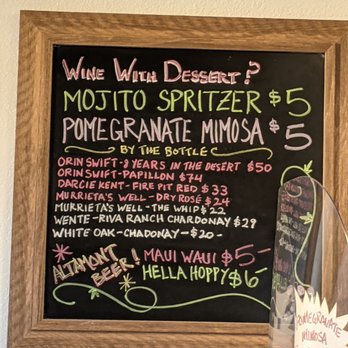 WINE WITH DESSERT?
MOJITO SPRITZER $5
POMEGRANATE MIMOSA $5
BY THE BOTTLE
ORIN SWIFT - 8 YEARS IN THE DESERT $50
ORIN SWIFT - PAPILLON $74
DARCIE KENT - FIRE PIT RED $33
MURRIETA'S WELL - DRY ROSÉ $24
MURRIETA'S WELL - THE WHIP $22
WENTE - RIVA RANCH CHARDONAY $29
WHITE OAK - CHADONAY - $20-
ALTAMONT BEER!
MAUI WAUI $5-
HELLA HOPPY $6-
POMEGRANATE
MIMOSA